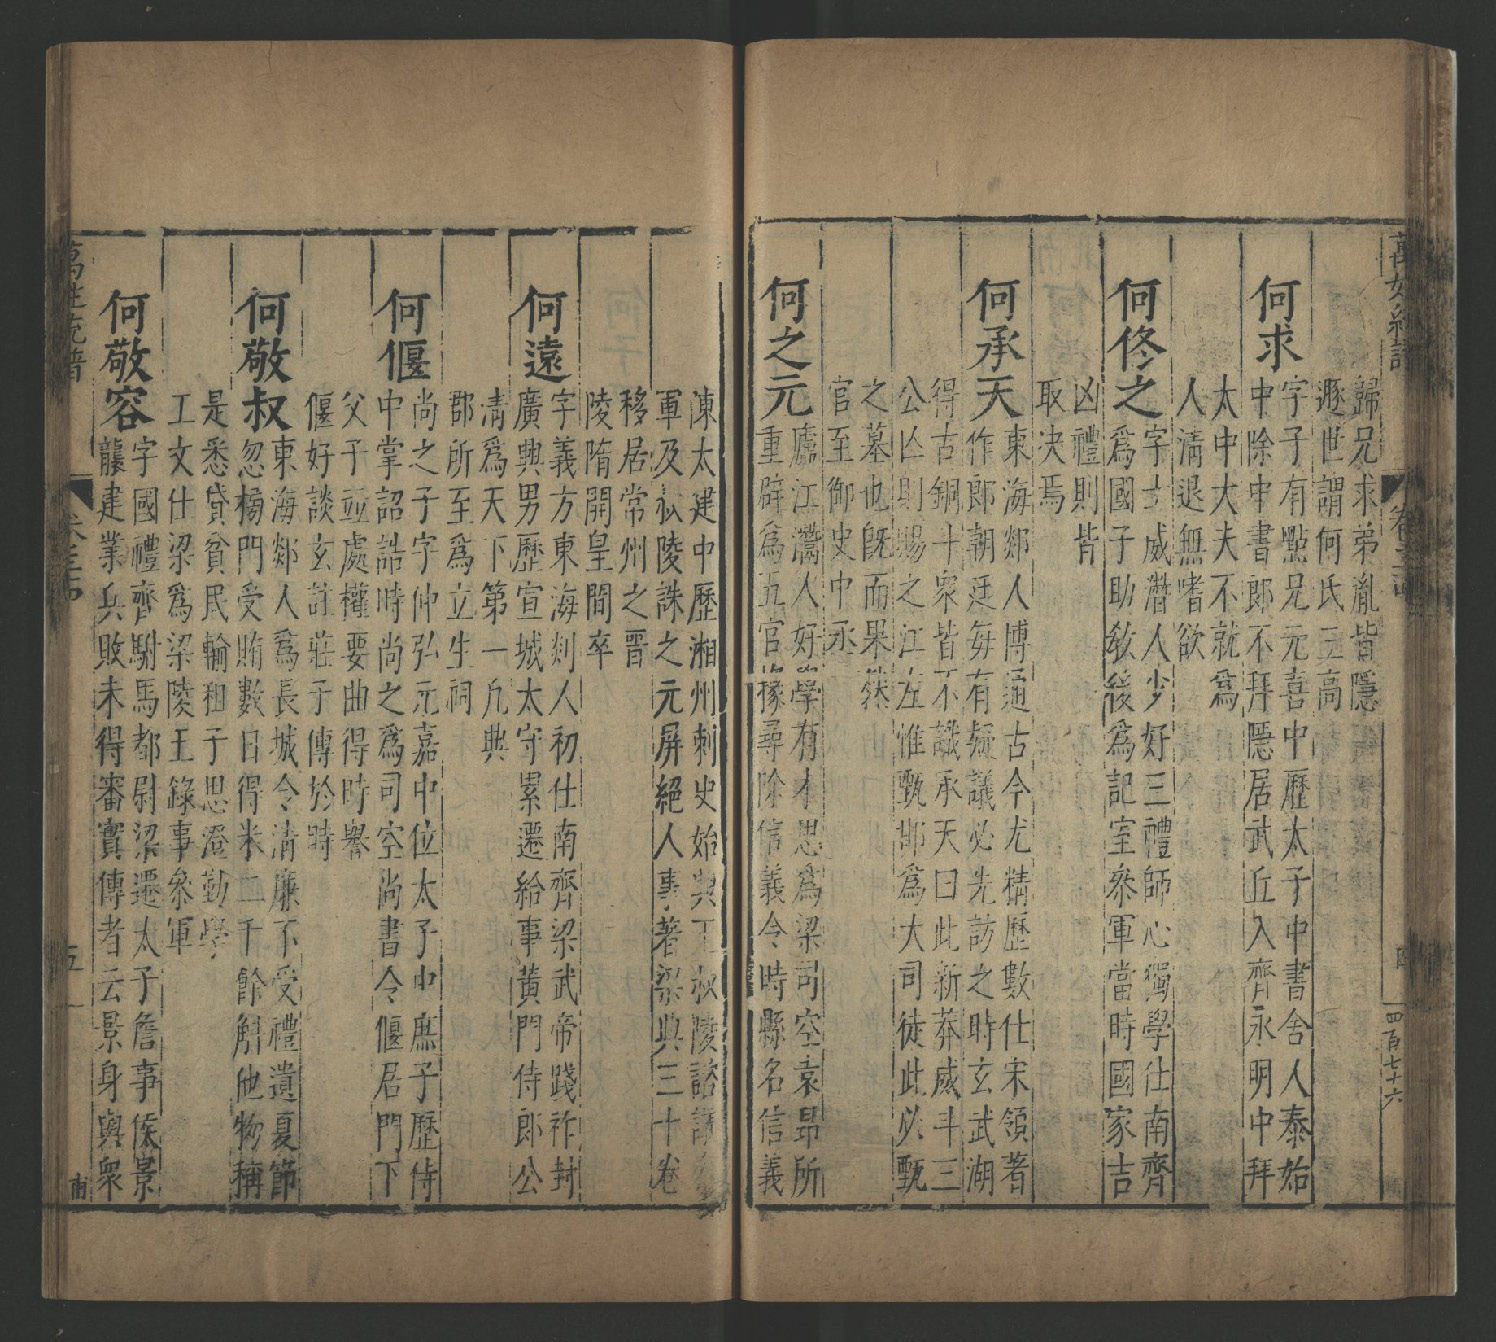 萬姓統譜
卷三
四百七十六
歸兄求弟胤皆隱
遯世謂何氏三高
何求
字子有點兄元嘉中歷太子中書舍人泰始
中除中書郎不拜隱居武丘入齊永明中拜
太中大夫不就爲
人清退無嗜欲
何佟之
字士威灊人少好三禮師心獨學仕南齊
爲國子助敎後爲記室參軍當時國家吉
凶禮則皆
取決焉
何承天
東海郯人博通古今尤精歷數仕宋領著
作郎朝廷每有疑議必先訪之時玄武湖
得古銅斗衆皆不識承天曰此新莽威斗三
公亡則賜之江左惟甄邯爲大司徒此必甄
之墓也旣而果然
官至御史中丞
何之元
廬江灊人好學有才思爲梁司空袁昻所
重辟爲五官掾尋除信義令時縣名信義
凍太建中歷湘州刺史始興王叔陵諮議
軍及叔陵誅之元屏絕人事著梁典三十卷
移居常州之晋
陵隋開皇間卒
何遠
字義方東海剡人初仕南齊梁武帝踐祚封
廣興男歷宣城太守累遷給事黃門侍郎公
清爲天下第一凡典
郡所至爲立生祠
何偃
尚之子字仲弘元嘉中位太子中庶子歷侍
中掌詔誥時尚之爲司空尚書令偃居門下
父子並處權要曲得時譽
偃好談玄註莊子傳於時
何敬叔
東海郯人爲長城令清廉不受禮遺夏節
忽榜門受賄數日得米二千餘斛他物稱
是悉貸貧民輸租子思澄勤學
工文仕梁爲梁陵王錄事參軍
何敬容
字國禮齊駙馬都尉梁遷太子詹事侯景
襲建業兵敗未得審實傳者云景身與衆
萬姓統譜
卷三
五
南